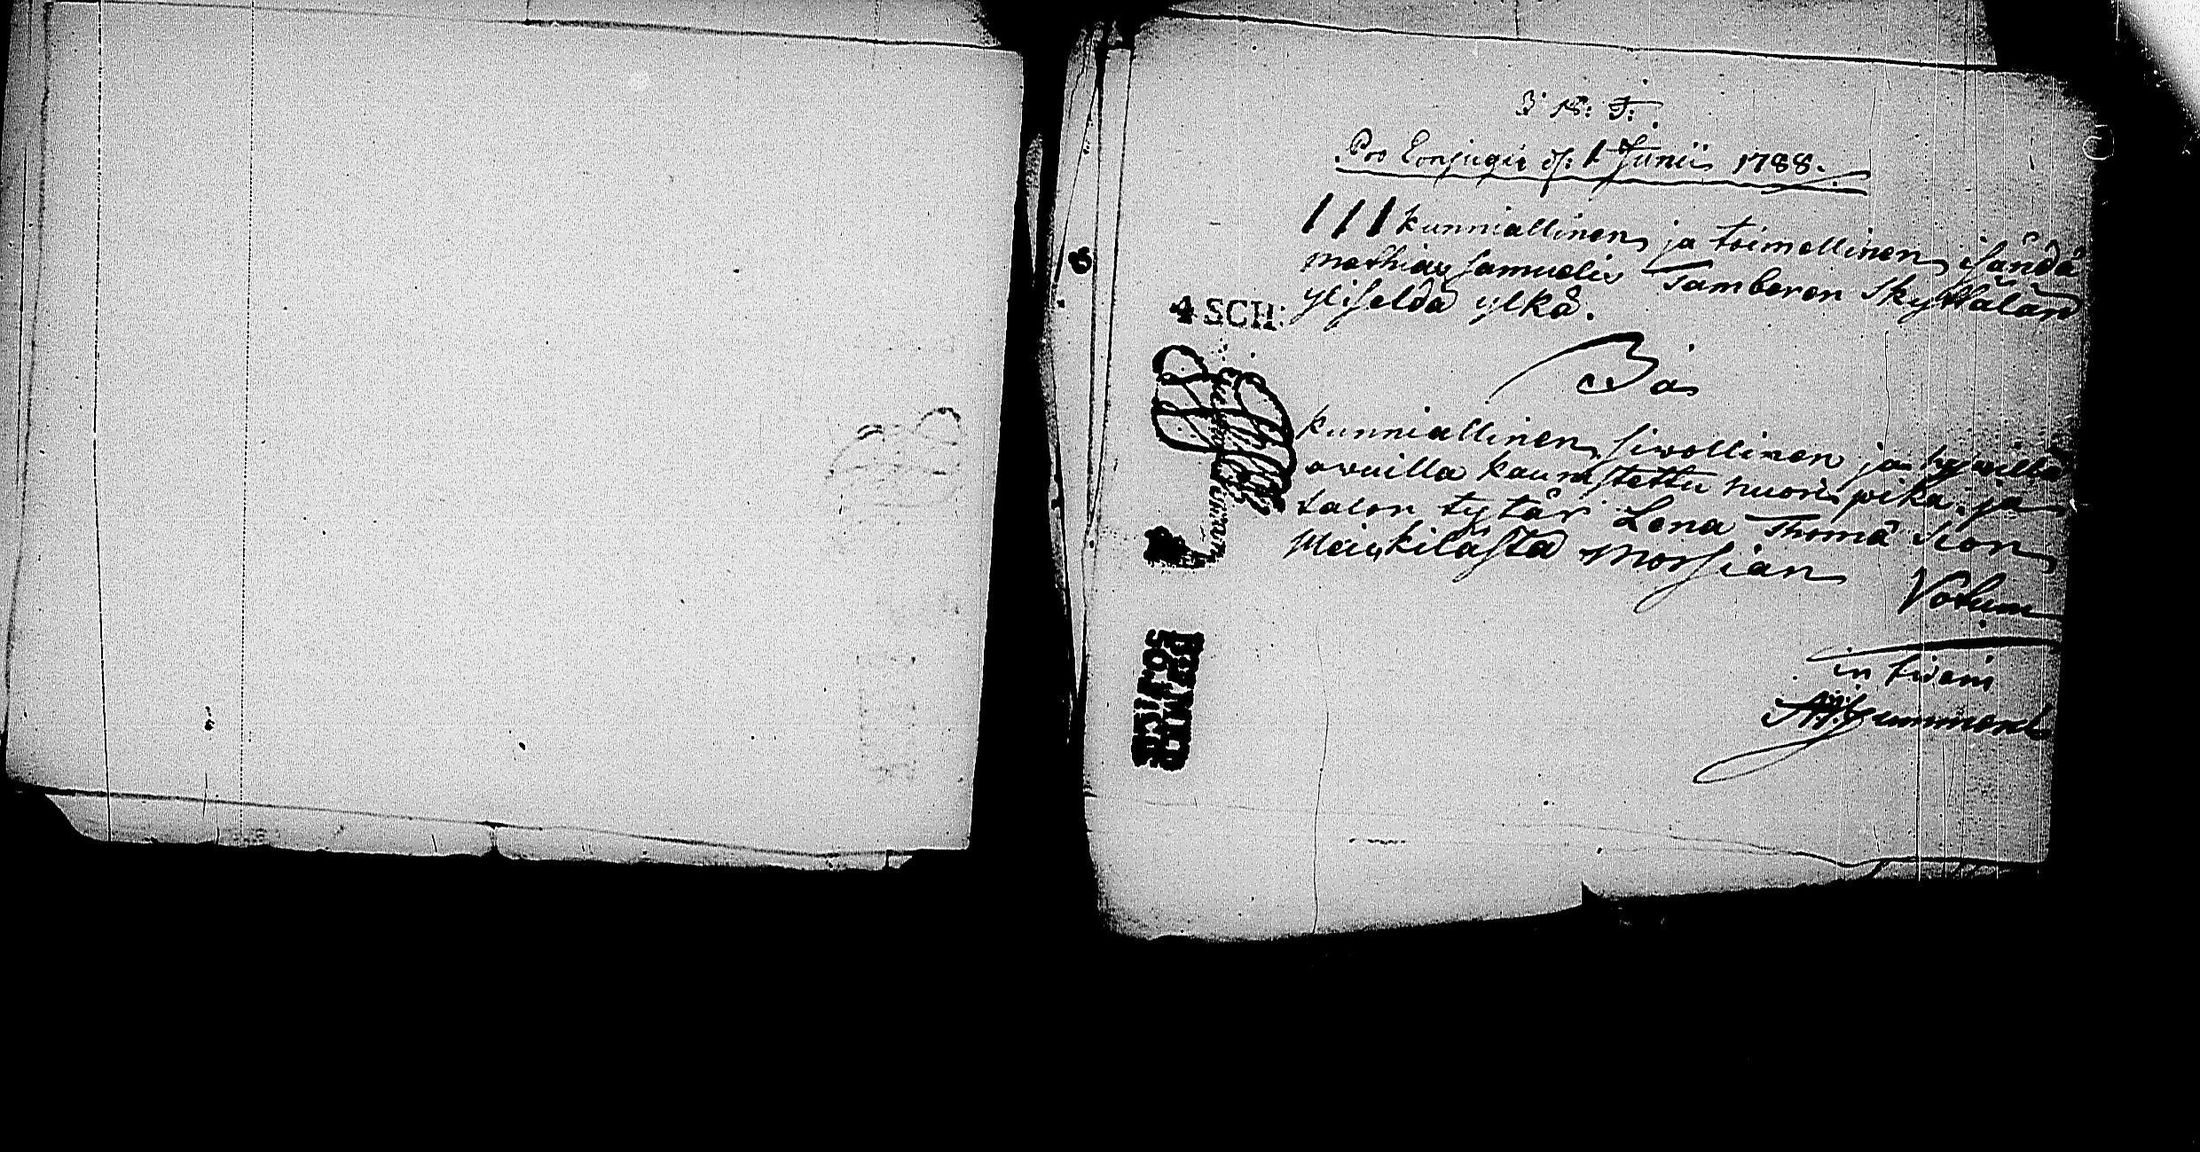 J. N: J:
Pro Conjugio d. 1 Junii 1788.
/// kunniallinen ja toimellinen isändä
Mathias Samuelis Tamberen Skyttälän
yliseldä ylkä.
Ja
kunniallinen siwollinen ja hywillä
awuilla kaunistettu nuori pika ja
talon tytär Lena Thomä
morsian
Votum
in fidem
4 SCH: